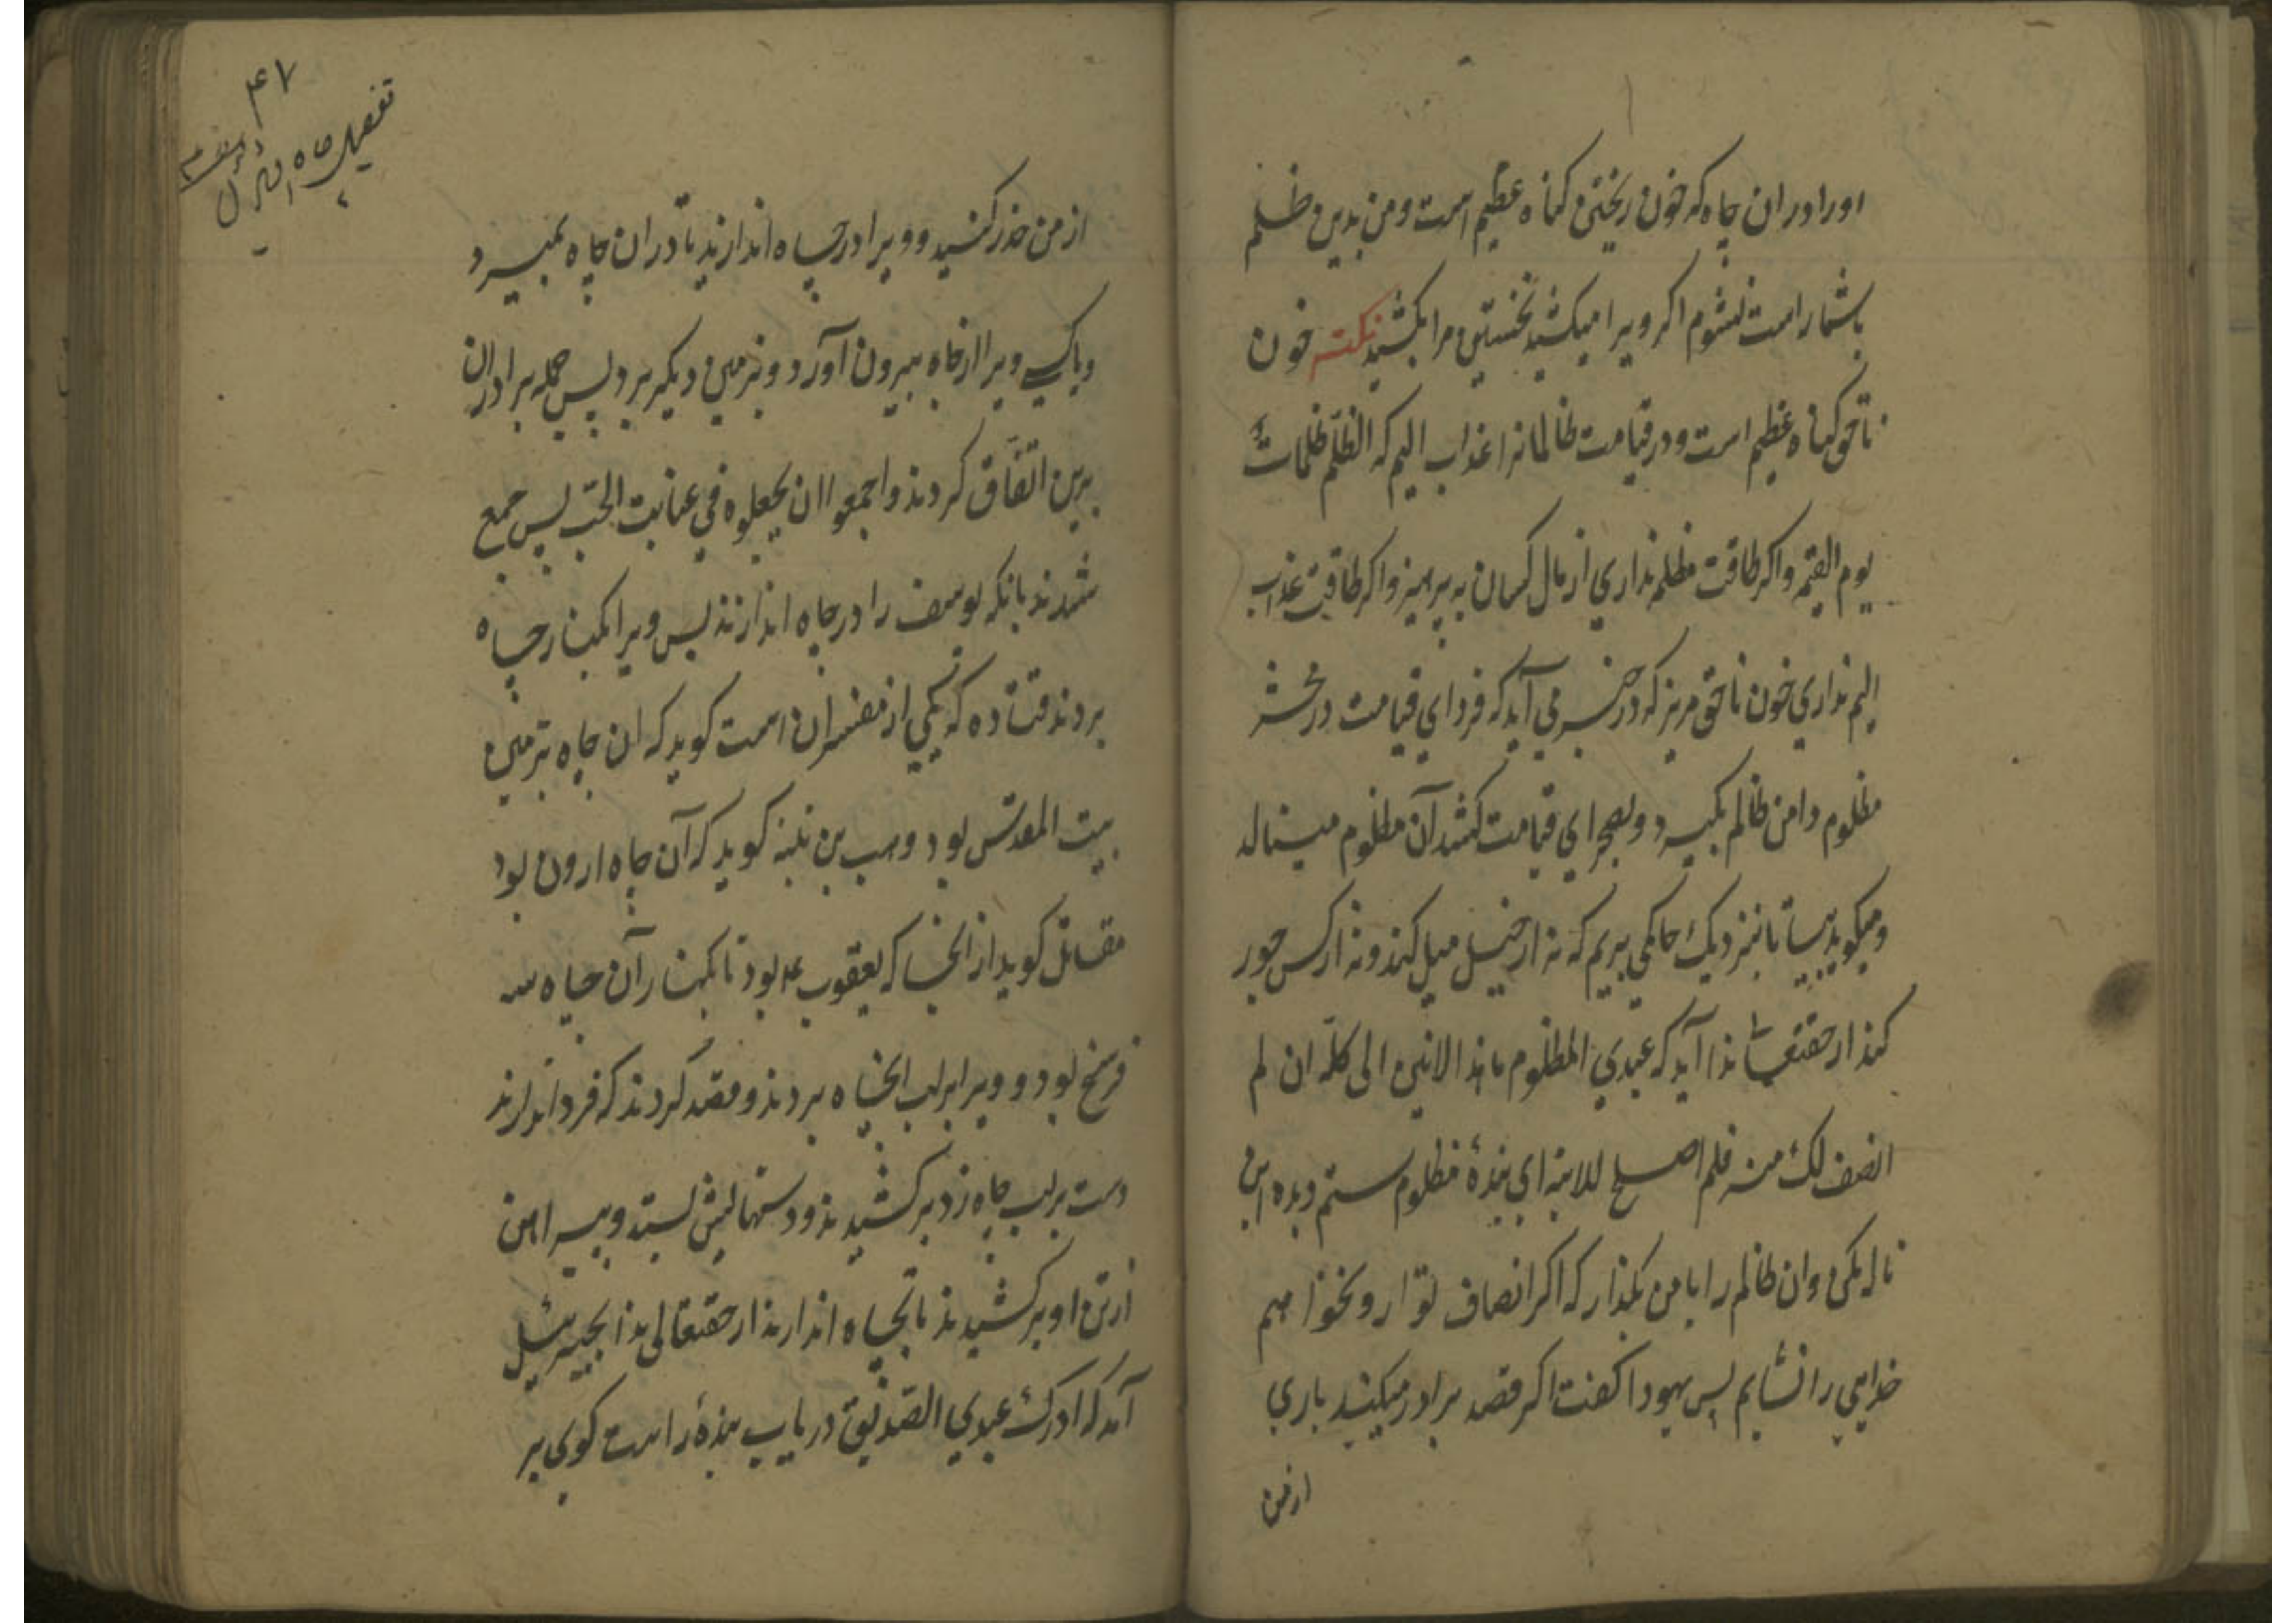 اورا دران چاه که خون ریختن کناه عظیم است و من بدین ظلم
باشما راست نشوم اکر ویرا میکشید نخستین مرا بکشید نکته خون
ناحق کناه عظیم است و در قیامت ظالمانرا عذاب الیم که الظلم ظلمات
یوم القیمه و اکر طاقت مظلمه نداری از مال کسان به پرهیز و اکر طاقت عذاب
الیم نداری خون ناحق مریز که در خبر می آید که فردای قیامت در محشر
مظلوم دامن ظالم بکیرد و بصحرای قیامت کشد آن مظلوم مینالد
و میکوید بیا تا بنزدیک حاکمی بریم که نه از خیل میل کند و نه از کس جور
کند از حقتعا ندا آید که عبدی المظلوم ما هذا الانین الی کله ان لم
انصف لک منه فلم اصلح للابنه ای بندهٔ مظلوم ستم دیده این
ناله مکن و ان ظالم را با من بکذار که اکر انصاف تو ازو نخواهم
خدایی را نشایم پس یهودا کفت اکر قصد برادر میکنید باری
از من
۴۷
تفصیل چاه
از من حذر کنید و ویرا در چاه اندازید تا دران چاه بمیرد
ویا کسی ویرا از چاه بیرون آورد و بزمین دیکر برد پس جمله برادران
برین اتفاق کردند و اجمعوا ان یجعلوه فی غیابت الجب پس جمع
شدند بانکه یوسف را در چاه اندازند پس ویرا بکنار چاه
بردند قتاده که یکی از مفسران است کوید که ان چاه بزمین
بیت المقدس بود وهب بن منبه کوید که آن چاه اردن بود
مقاتل کوید از انجا که یعقوب ع بود تا بکنار آن چاه سه
فرسخ بود و ویرا بر لب انچاه بردند و قصد کردند که فرو اندازند
دست بر لب چاه زد برکشیدند و دستهایش بستند و پیراهن
از تن او برکشیدند تا بچاه اندازند از حقتعالی ندا بجبرئیل
آمد که ادرک عبدی الصدیق دریاب بندهٔ راست کوی بر